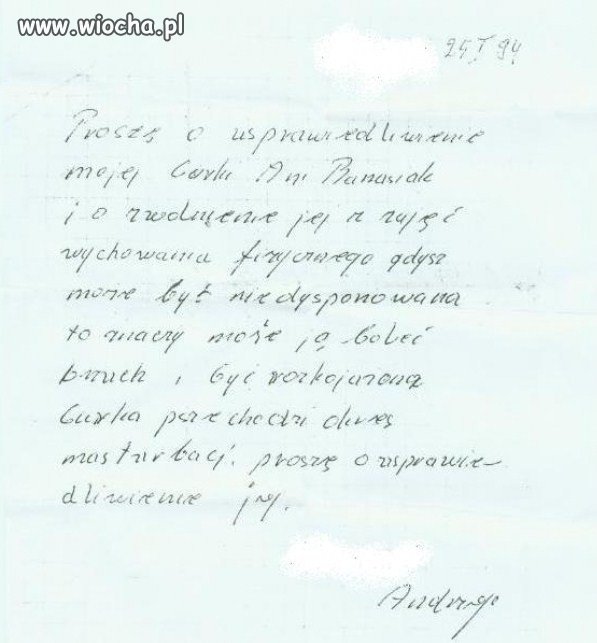 www.wiocha.pl
25 I 94
Proszę o usprawiedliwienie
mojej Curki Ani Banasiak
i o zwolnienie jej z zajęć
wychowania fizycznego gdysz
morze być niedysponowana
to znaczy może ją boleć
brzuch i być rozkojarzona
Curka przechodzi okres
masturbacji. proszę o usprawie-
dliwienie jej.
Andrzej